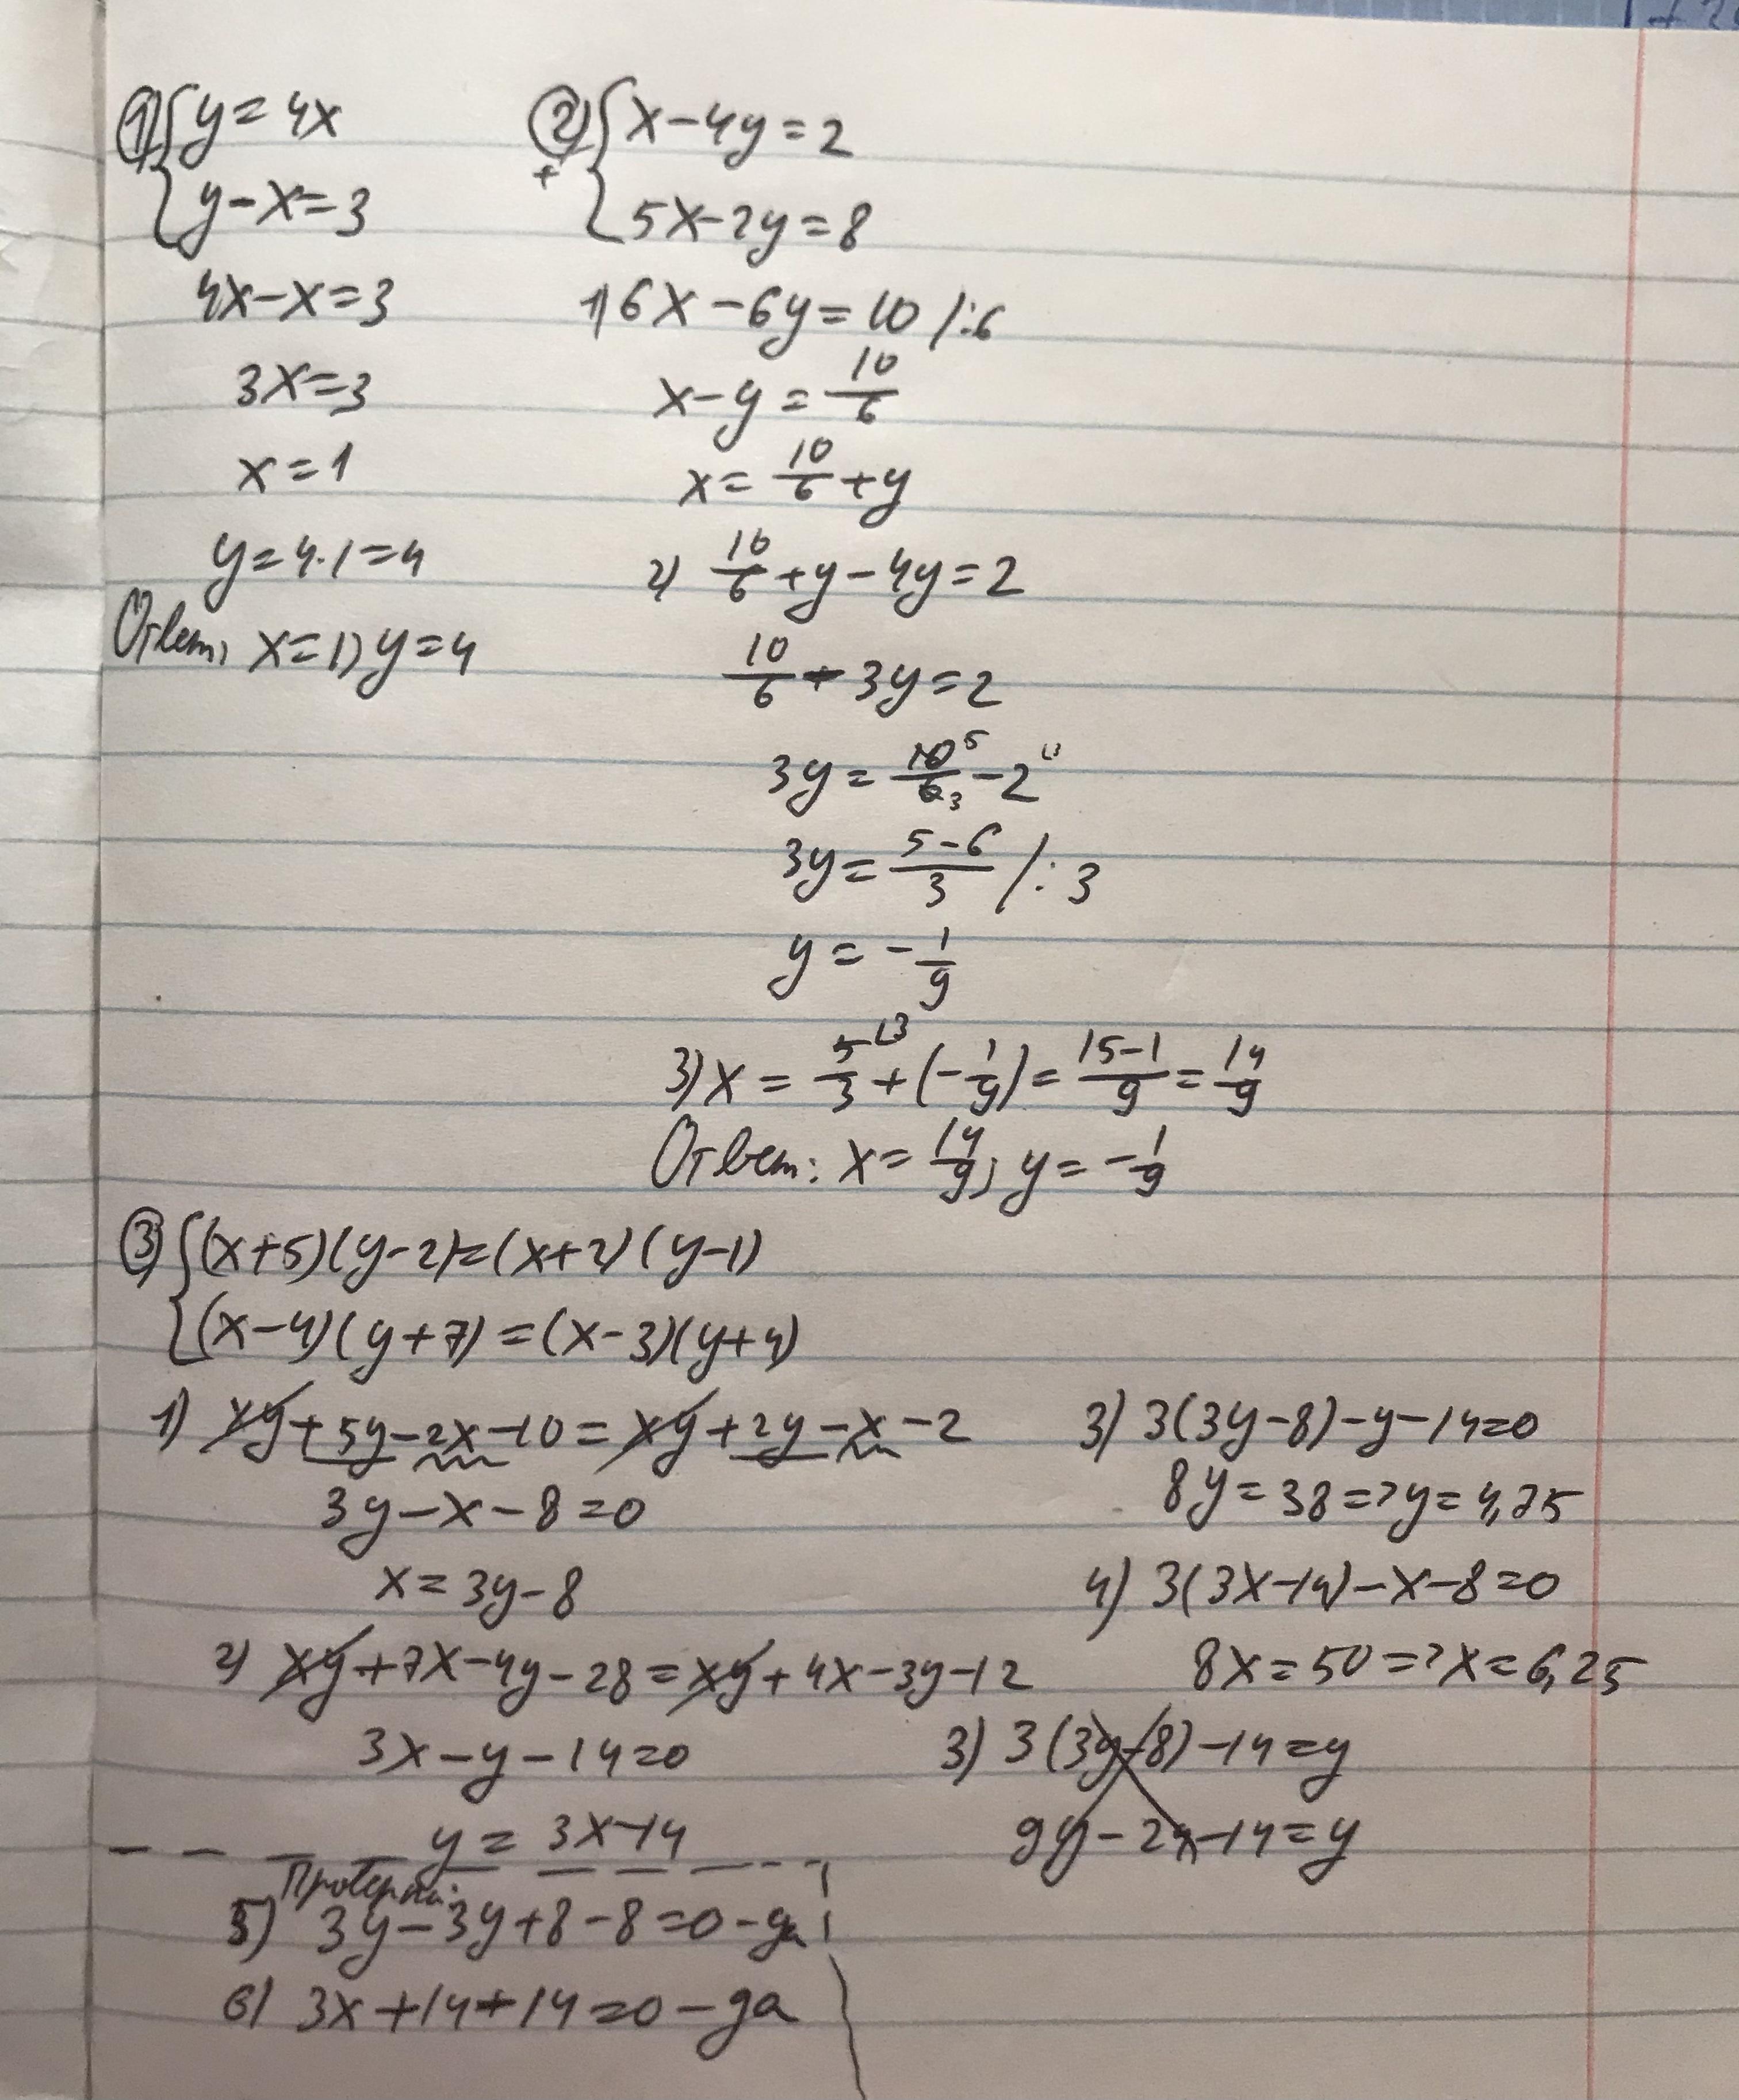 1) { y = 4x
y - x = 3
4x - x = 3
3x = 3
x = 1
y = 4·1 = 4
Ответ: x = 1; y = 4
2) + { x - 4y = 2
5x - 2y = 8
1) 6x - 6y = 10 /:6
x - y = 10/6
x = 10/6 + y
2) 10/6 + y - 4y = 2
10/6 - 3y = 2
3y = 10/6 - 2
3y = (5 - 6)/3 /:3
y = -1/9
3) x = 5/3 + (-1/9) = (15-1)/9 = 14/9
Ответ: x = 14/9; y = -1/9
3) { (x+5)(y-2) = (x+2)(y-1)
(x-4)(y+7) = (x-3)(y+4)
1) xy + 5y - 2x - 10 = xy + 2y - x - 2
3y - x - 8 = 0
x = 3y - 8
2) xy + 7x - 4y - 28 = xy + 4x - 3y - 12
3x - y - 14 = 0
y = 3x - 14
3) 3(3y - 8) - y - 14 = 0
8y = 38 => y = 4,75
4) 3(3x - 14) - x - 8 = 0
8x = 50 => x = 6,25
3) 3(3y - 8) - 14 = y
Проверка:
5) 3y - 3y + 8 - 8 = 0 - да
6) 3x + 14 + 14 = 0 - да